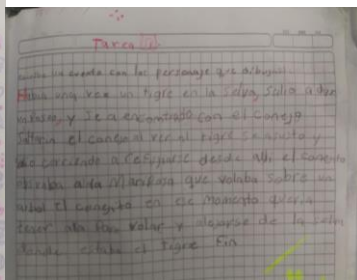 Tarea
un cuento con los personaje que dibujaste
Había una vez un tigre en la selva, salio a dar
y se a encontrado con el conejo
el conejo al ver al tigre se asusto y
corriendo a refugiarse desde alli el conejito
miraba a la Mariposa que volaba sobre un
arbol el conejito en ese momento queria
tener ala para volar y alejarse de la selva
donde estaba el tigre Fin